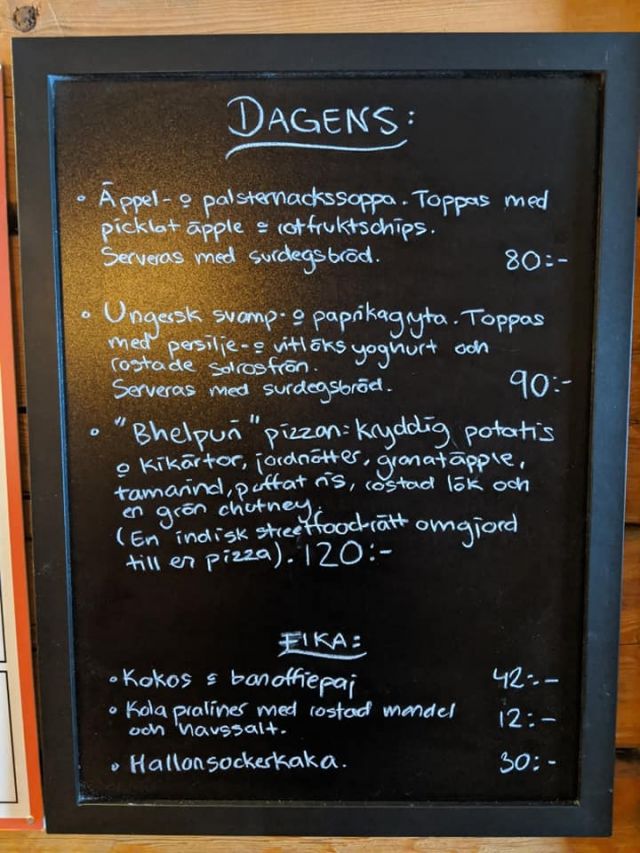 DAGENS:
• Äppel- o palsternackssoppa. Toppas med
picklat äpple o rotfruktschips.
Serveras med surdegsbröd. 80:-
• Ungersk svamp- o paprikagryta. Toppas
med persilje- o vitlöksyoghurt och
rostade solrosfrön.
Serveras med surdegsbröd. 90:-
• "Bhelpuri" pizzan: kryddig potatis
o kikärtor, jordnötter, granatäpple,
tamarind, puffat ris, rostad lök och
en grön chutney.
(En indisk streetfoodrätt omgjord
till en pizza). 120:-
FIKA:
• Kokos & banoffiepaj 42:-
• Kola praliner med rostad mandel 12:-
och havssalt.
• Hallonsockerkaka. 30:-